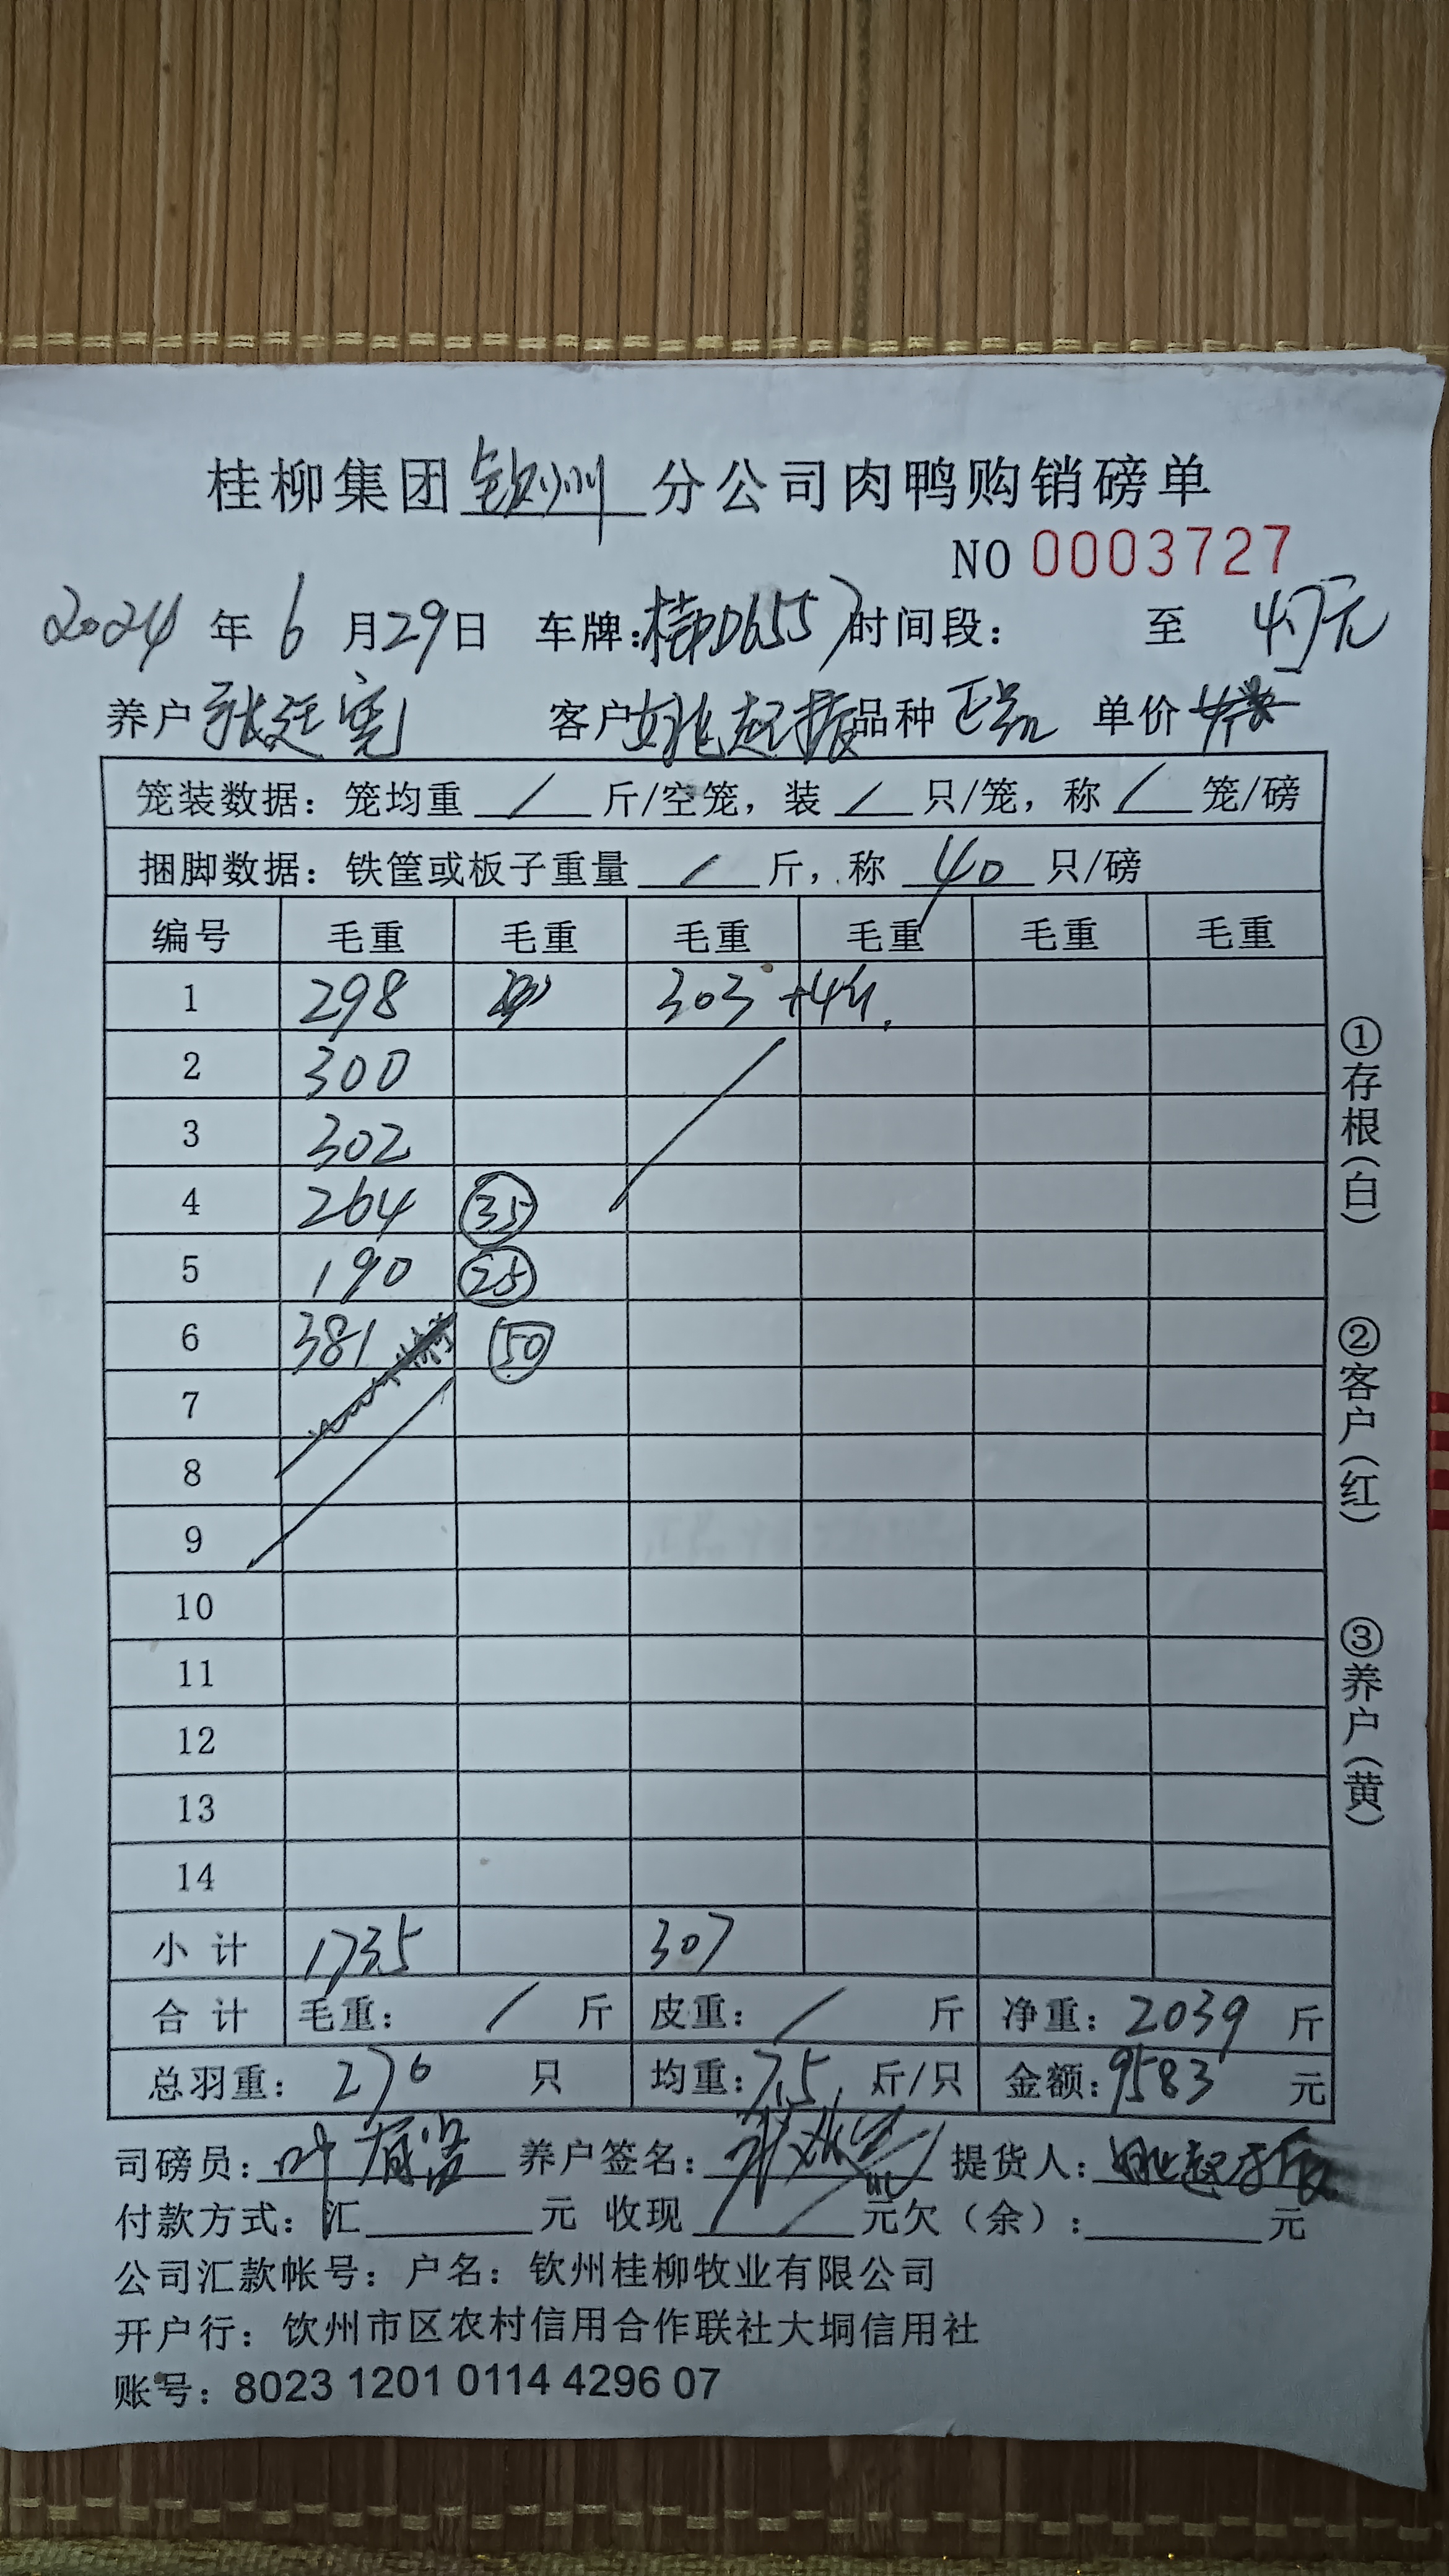 桂柳集团钦州分公司肉鸭购销磅单
NO 0003727
2024年6月29日 车牌:桂D6557 时间段: 至 4.7元
养户 张廷宪 客户 姚起振 品种 正品 单价
笼装数据：笼均重 / 斤/空笼，装 / 只/笼，称 / 笼/磅
捆脚数据：铁筐或板子重量 / 斤，称 40 只/磅
编号 毛重 毛重 毛重 毛重 毛重 毛重
1 298 303 +4斤.
2 300
3 302
4 264 35
5 190 25
6 381 50
7
8
9
10
11
12
13
14
小计 1735 307
合计 毛重： / 斤 皮重： / 斤 净重：2039 斤
总羽重：270 只 均重:7.5 斤/只 金额:9583 元
司磅员: 养户签名: 提货人: 姚起振
付款方式：汇 元 收现 元欠（余）: 元
公司汇款帐号：户名：钦州桂柳牧业有限公司
开户行：饮州市区农村信用合作联社大垌信用社
账号：8023 1201 0114 4296 07
①存根（白）
②客户（红）
③养户（黄）